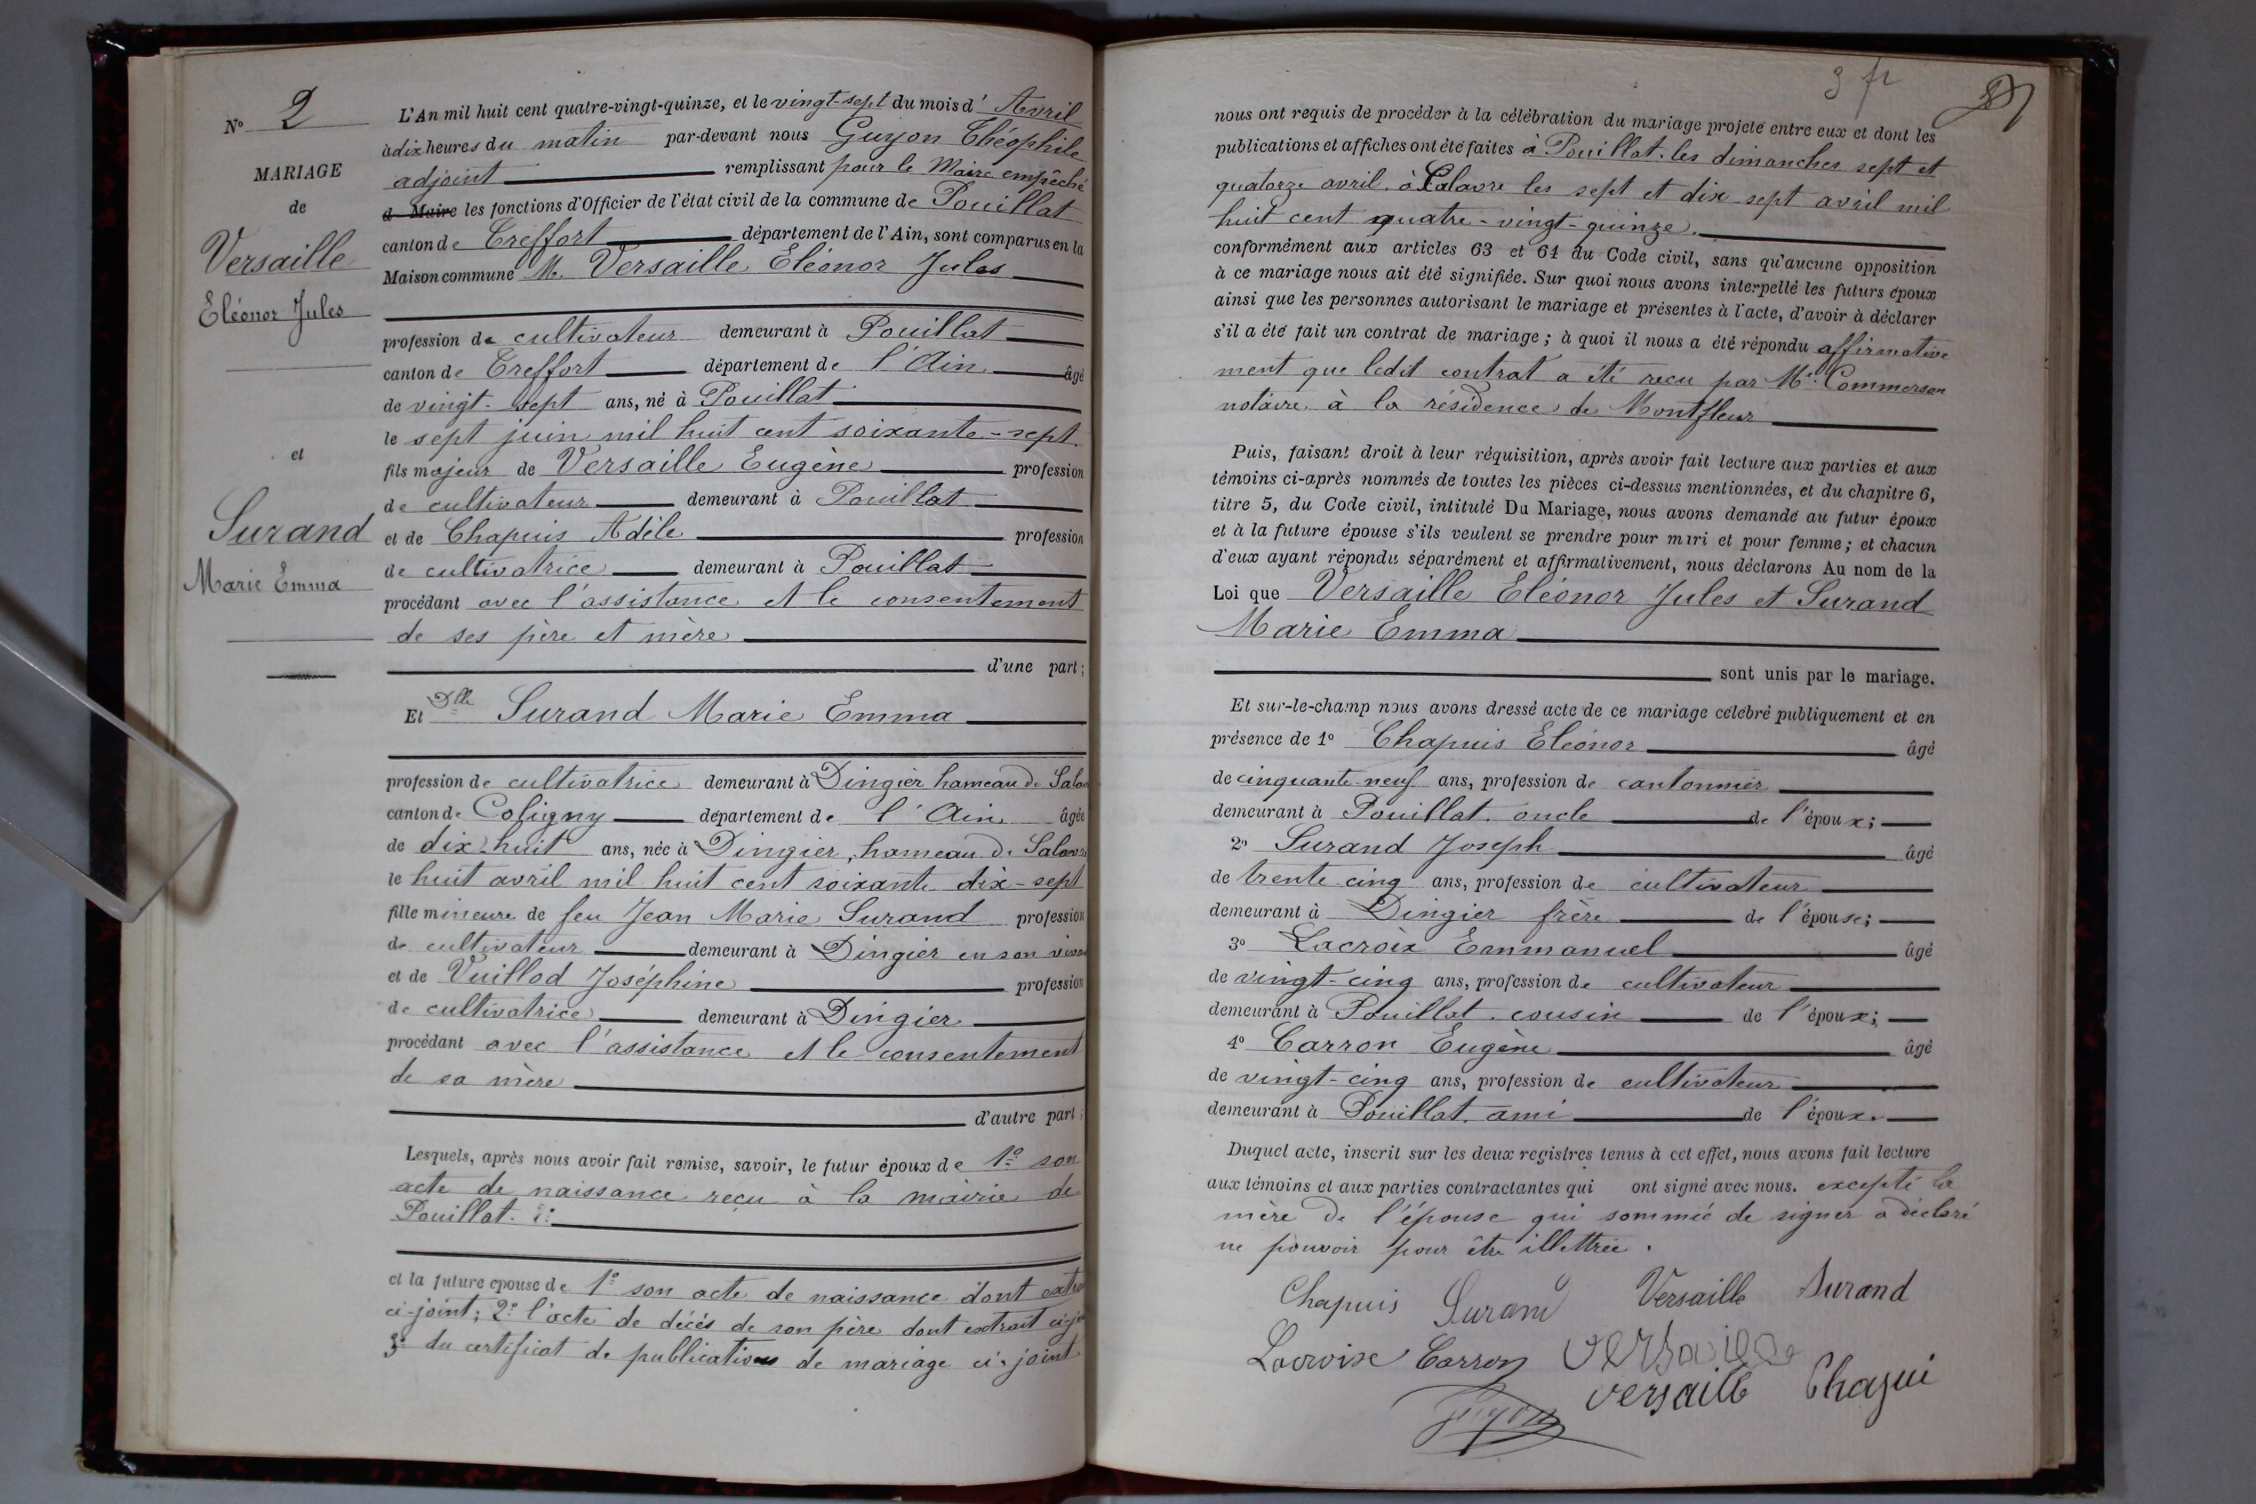 N° 2
MARIAGE
de
Versaille
Eléonor Jules
et
Surand
Marie Emma
L'An mil huit cent quatre-vingt-quinze, et le vingt-sept du mois d' Avril
à dix heures du matin par-devant nous Guyon Théophile
adjoint remplissant pour le Maire empêché
d Maire les fonctions d'Officier de l'état civil de la commune de Pouillat
canton de Treffort département de l'Ain, sont comparus en la
Maison commune M. Versaille Eléonor Jules
profession de cultivateur demeurant à Pouillat
canton de Treffort département de l'Ain âgé
de vingt-sept ans, né à Pouillat
le sept juin mil huit cent soixante-sept.
fils majeur de Versaille Eugène profession
de cultivateur demeurant à Pouillat
et de Chapuis Adèle profession
de cultivatrice demeurant à Pouillat
procédant avec l'assistance et le consentement
de ses père et mère
d'une part;
Et Dlle Surand Marie Emma
profession de cultivatrice demeurant à Dingier hameau de
canton de Coligny département de l'Ain âgée
de dix-huit ans, née à Dingier, hameau de Salavre
le huit avril mil huit cent soixante dix-sept
fille mineure de feu Jean Marie Surand profession
de cultivateur demeurant à Dingier en son
et de Vuillod Joséphine profession
de cultivatrice demeurant à Dingier
procédant avec l'assistance et le consentement
de sa mère
d'autre part;
Lesquels, après nous avoir fait remise, savoir, le futur époux de 1° son
acte de naissance reçu à la mairie de
Pouillat.
et la future epouse de 1° son acte de naissance dont
ci-joint; 2° l'acte de décès de son père dont extrait
3° du certificat de publications de mariage ci-joint
3 fr
nous ont requis de procéder à la célébration du mariage projeté entre eux et dont les
publications et affiches ont été faites à Pouillat. les dimanches sept et
quatorze avril. à Salavre les sept et dix sept avril mil
huit cent quatre-vingt-quinze.
conformément aux articles 63 et 64 du Code civil, sans qu'aucune opposition
à ce mariage nous ait été signifiée. Sur quoi nous avons interpellé les futurs époux
ainsi que les personnes autorisant le mariage et présentes à l'acte, d'avoir à déclarer
s'il a été fait un contrat de mariage; à quoi il nous a été répondu affirmative
ment que ledit contrat a été recu par Me. Commerson
notaire à la résidence de Montfleur
Puis, faisant droit à leur réquisition, après avoir fait lecture aux parties et aux
témoins ci-après nommés de toutes les pièces ci-dessus mentionnées, et du chapitre 6,
titre 5, du Code civil, intitulé Du Mariage, nous avons demandé au futur époux
et à la future épouse s'ils veulent se prendre pour mari et pour femme; et chacun
d'eux ayant répondu séparément et affirmativement, nous déclarons Au nom de la
Loi que Versaille Eléonor Jules et Surand
Marie Emma
sont unis par le mariage.
Et sur-le-champ nous avons dressé acte de ce mariage célébré publiquement et en
présence de 1° Chapuis Eléonor âgé
de cinquante-neuf ans, profession de cantonnier
demeurant à Pouillat. oncle de l'époux;
2° Surand Joseph âgé
de trente cinq ans, profession de cultivateur
demeurant à Dingier frère de l'épouse;
3° Lacroix Emmanuel âgé
de vingt-cinq ans, profession de cultivateur
demeurant à Pouillat. cousin de l'époux;
4° Carron Eugène âgé
de vingt-cinq ans, profession de cultivateur
demeurant à Pouillat. ami de l'époux.
Duquel acte, inscrit sur les deux registres tenus à cet effet, nous avons fait lecture
aux témoins et aux parties contractantes qui ont signé avec nous. excepté la
mère de l'épouse qui sommié de signer a déclaré
ne pouvoir pour être illettrée.
Chapuis Surand Versaille Surand
Lacroix Carron Versailles
Versaille Chapui
Guyon